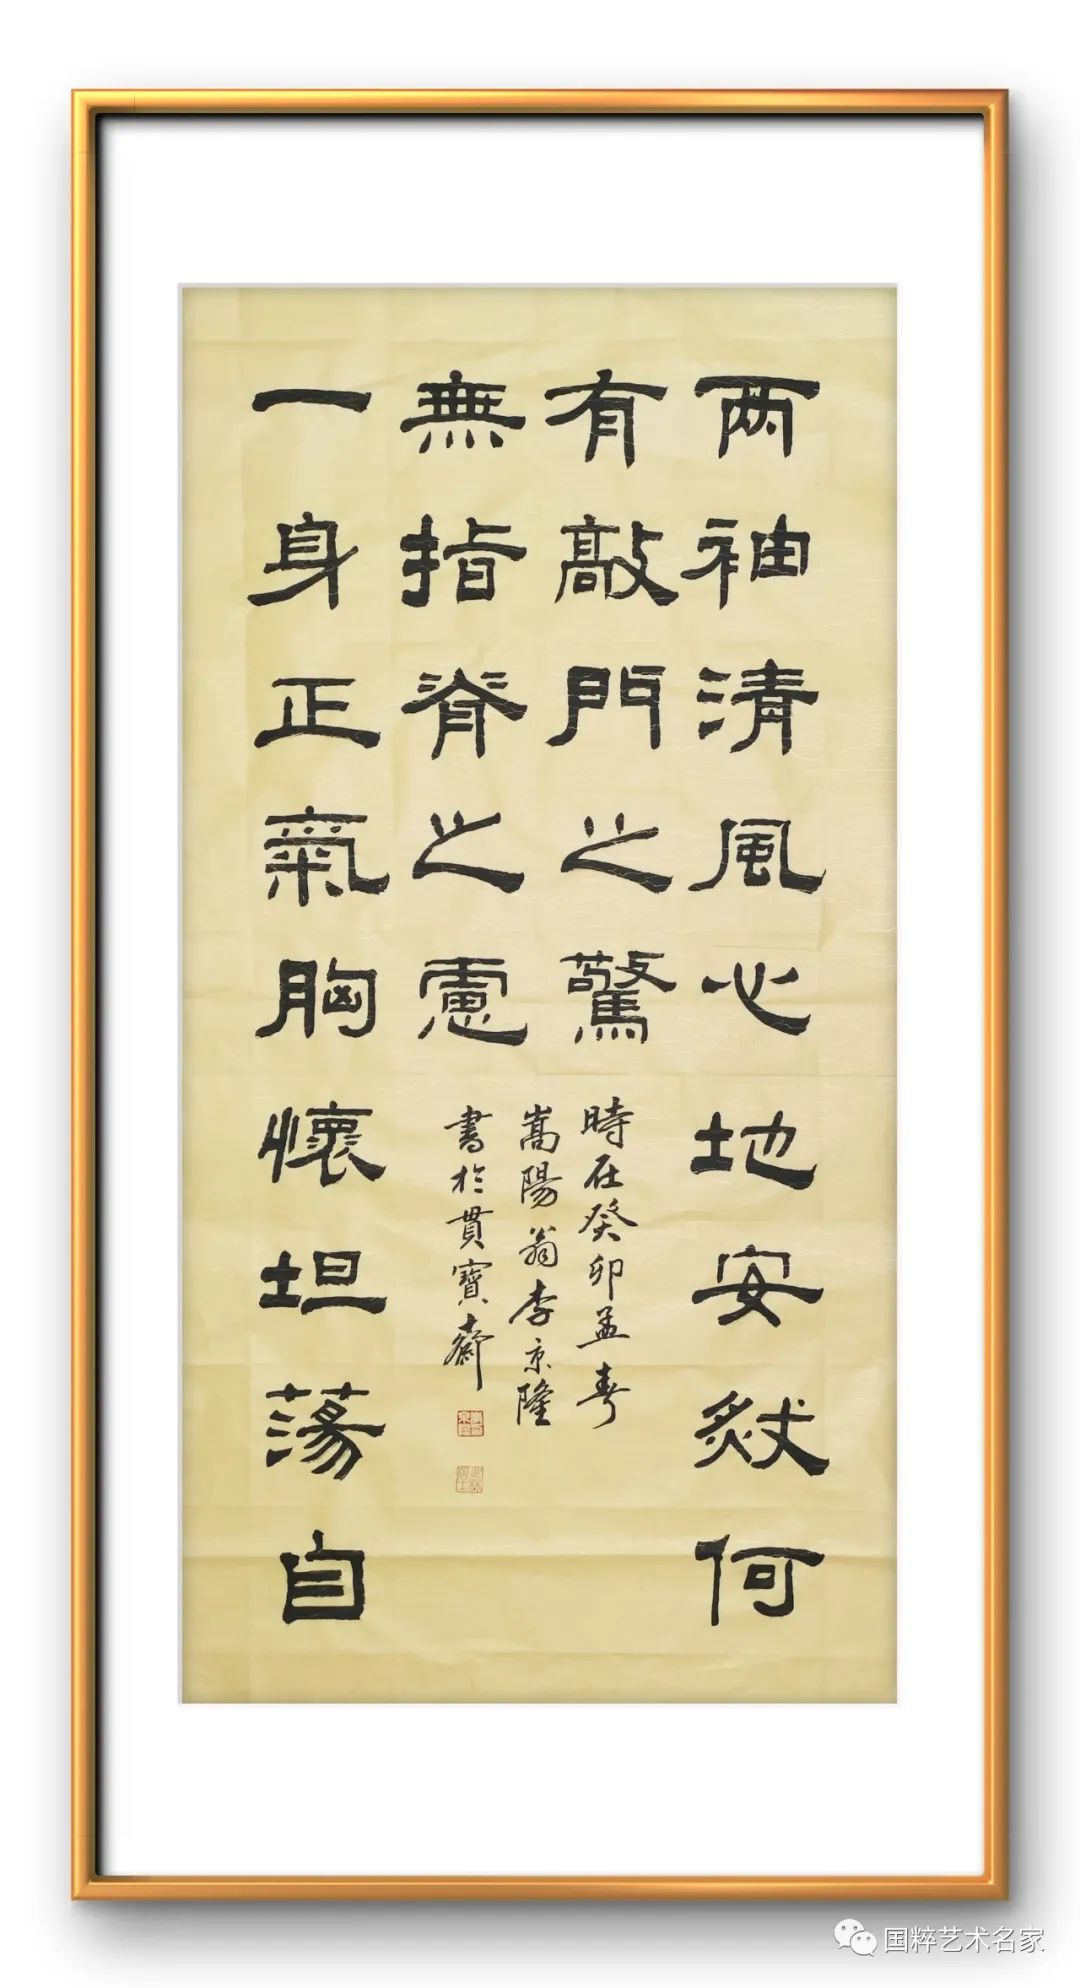 两袖清風心地安然何
有敲門之驚
一身正氣胸懷坦蕩自
無指脊之慮
時在癸卯孟春
嵩陽翁李京隆
書於貫寶齋
国粹艺术名家